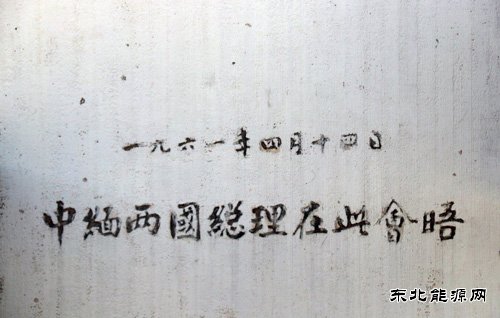 一九六一年四月十四日
中緬两國総理在此會晤
东北能源网